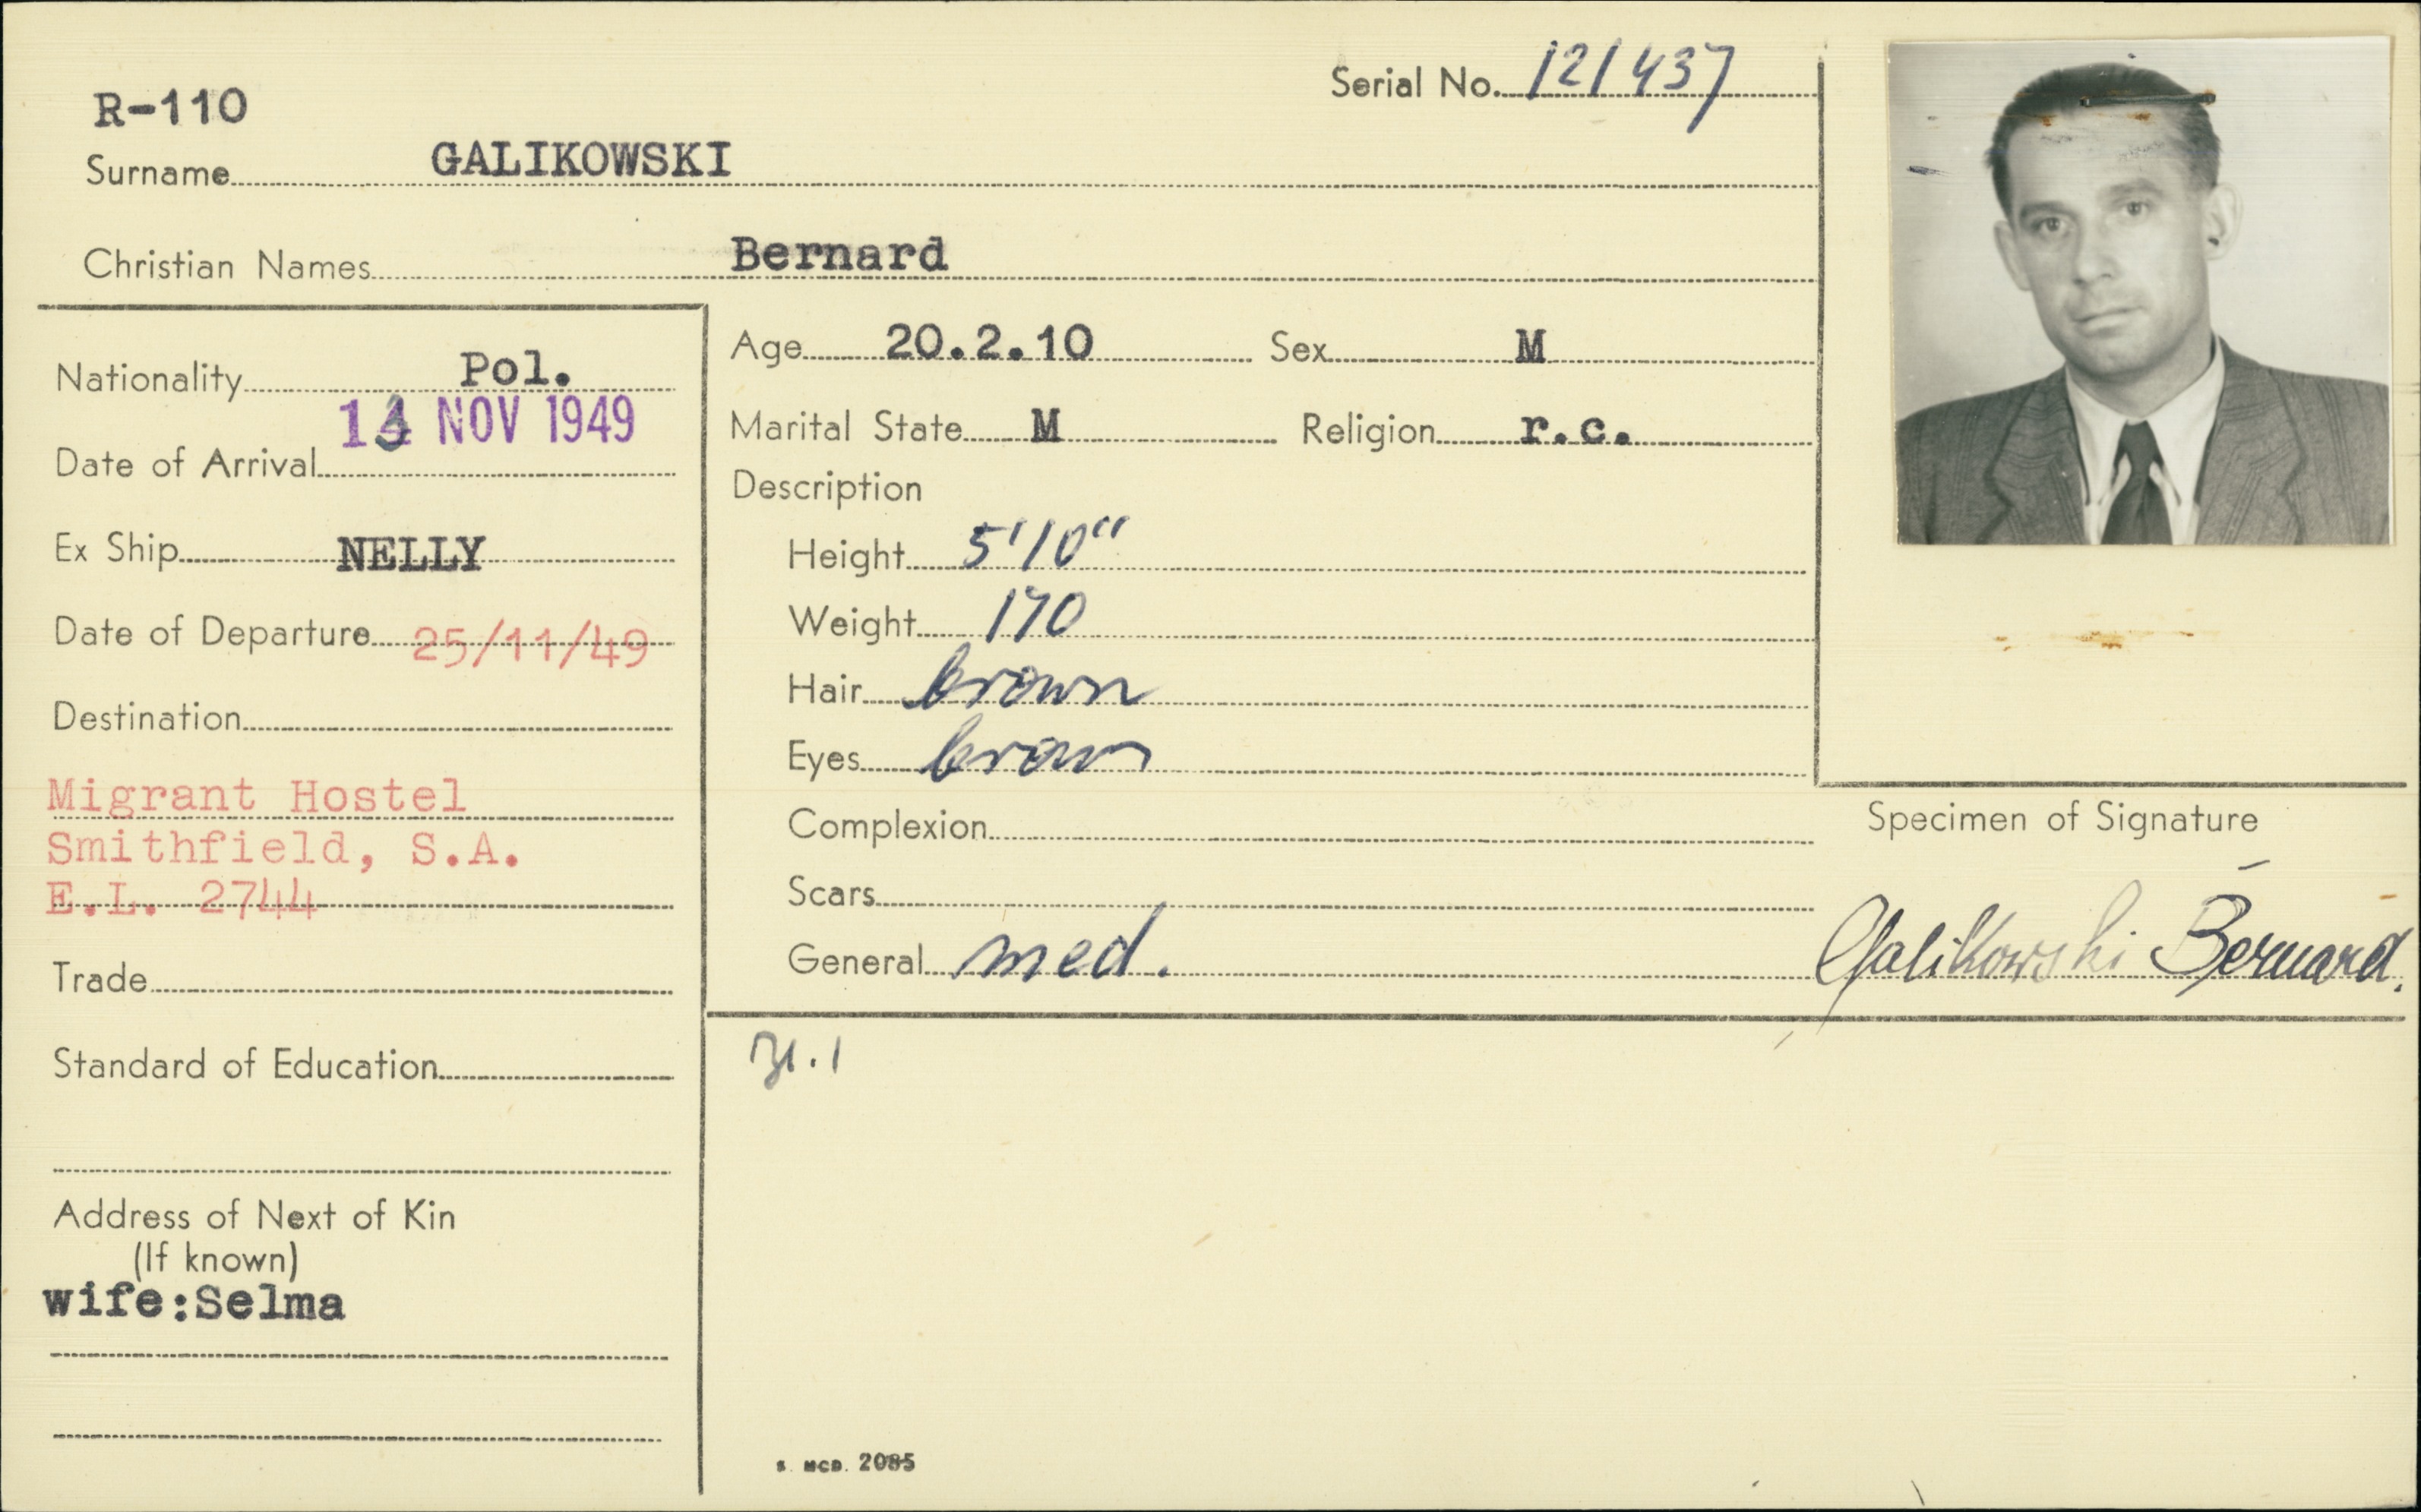 R-110
Serial No. 121437
Surname GALIKOWSKI
Christian Names Bernard
Nationality Pol.
Date of Arrival NOV 1949
Ex Ship NELLY
Date of Departure 25/11/49
Destination
Migrant Hostel
Smithfield, S.A.
E.L. 2744
Trade
Standard of Education
Address of Next of Kin
(If known)
wife:Selma
Age 20.2.10 Sex M
Marital State M Religion r.c.
Description
Height 5'10"
Weight 170
Hair brown
Eyes brown
Complexion
Scars
General med.
Specimen of Signature
Galikowski Bernard.
S. MCD. 2085